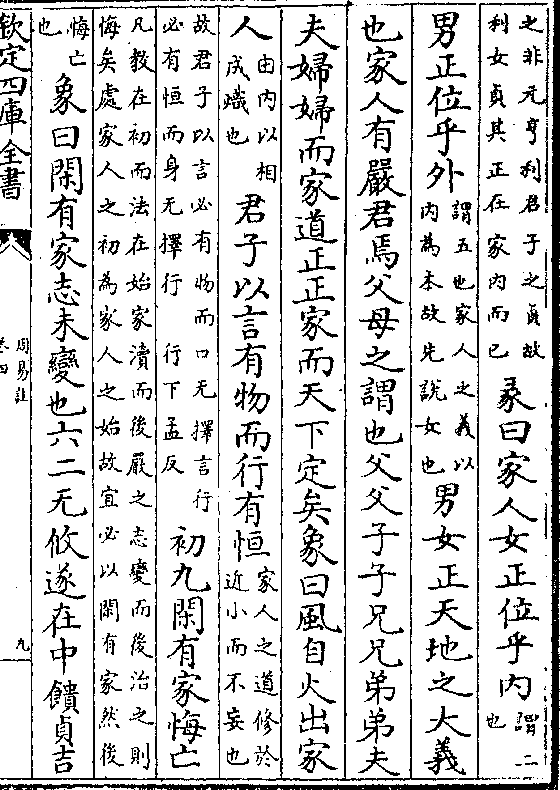 之非元亨利君子之貞故
利女貞其正在家內而已
彖曰家人女正位乎內
謂二
也
男正位乎外
謂五也家人之義以
內為本故先說女也
男女正天地之大義
也家人有嚴君焉父母之謂也父父子子兄兄弟弟夫
夫婦婦而家道正正家而天下定矣象曰風自火出家
人
由內以相
成熾也
君子以言有物而行有恒
家人之道修於
近小而不妄也
故君子以言必有物而口无擇言行
必有恒而身无擇行
行下孟反
初九閑有家悔亡
凡教在初而法在始家瀆而後嚴之志變而後治之則
悔矣處家人之初為家人之始故宜必以閑有家然後
悔亡
也
象曰閑有家志未變也六二无攸遂在中饋貞吉
欽定四庫全書
周易註
卷四
九